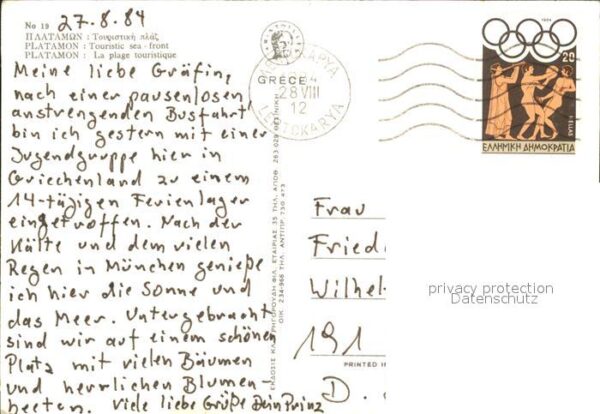 No 19
27.8.84
ΠΛΑΤΑΜΩΝ : Τουριστική πλάζ
PLATAMON : Touristic sea-front
PLATAMON : La plage touristique
Meine liebe Gräfin,
nach einer pausenlosen
anstrengenden Busfahrt
bin ich gestern mit einer
Jugendgruppe hier in
Griechenland zu einem
14-tägigen Ferienlager
eingetroffen. Nach der
Kälte und dem vielen
Regen in München genieße
ich hier die Sonne und
das Meer. Untergebracht
sind wir auf einem schönen
Platz mit vielen Bäumen
und herrlichen Blumen-
beeten. Viele liebe Grüße Dein Prinz
GREECE
28 VIII
12
LEPTOKARYA
20
HELLAS
ΕΛΛΗΝΙΚΗ ΔΗΜΟΚΡΑΤΙΑ
Frau
Fried
Wilhel
191
D.
PRINTED IN
privacy protection
Datenschutz